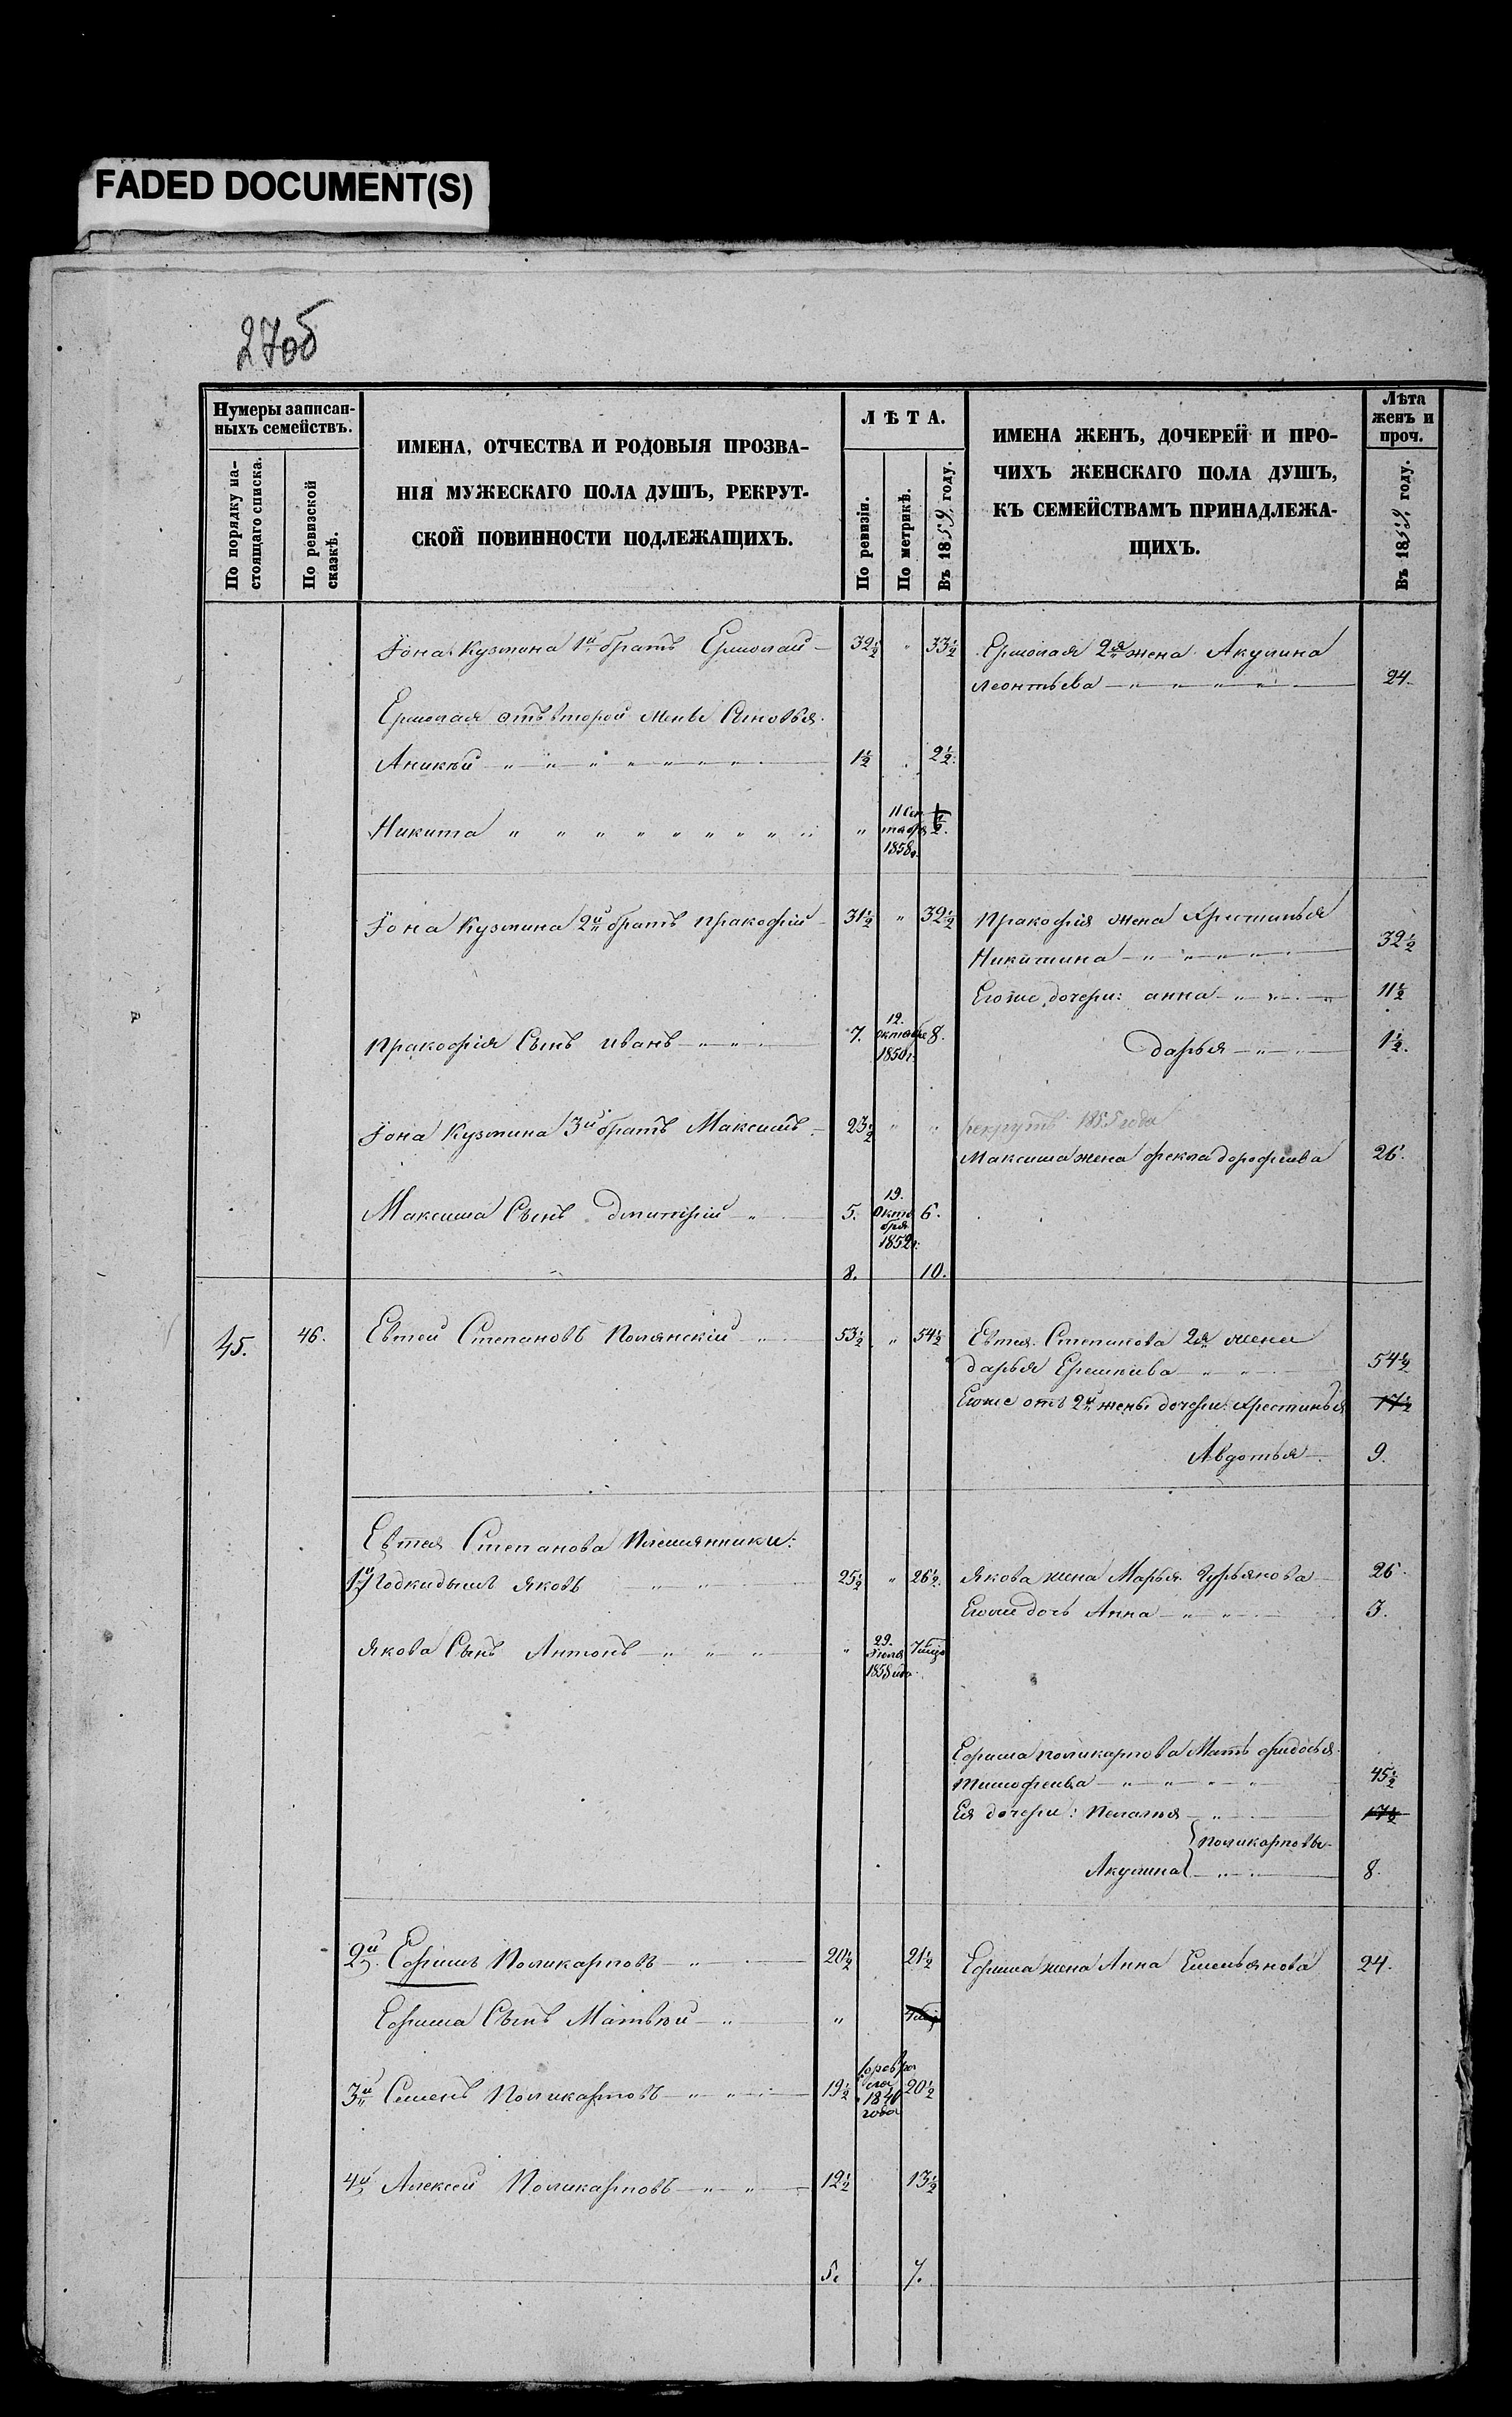 FADED DOCUMENT(S)
27об
Нумеры записан-
ныхъ семействъ.
По порядку на-
стоящаго списка.
По ревизской
сказкѣ.
ИМЕНА, ОТЧЕСТВА И РОДОВЫЯ ПРОЗВА-
НІЯ МУЖЕСКАГО ПОЛА ДУШЪ, РЕКРУТ-
СКОЙ ПОВИННОСТИ ПОДЛЕЖАЩИХЪ.
ЛѢТА.
По ревизіи.
По метрикѣ.
Въ 1859 году.
ИМЕНА ЖЕНЪ, ДОЧЕРЕЙ И ПРО-
ЧИХЪ ЖЕНСКАГО ПОЛА ДУШЪ,
КЪ СЕМЕЙСТВАМЪ ПРИНАДЛЕЖА-
ЩИХЪ.
Лѣта
женъ и
проч.
Въ 1859 году.
Іона Кузмина 1й братъ Ермолай 32½ " 33½ Ермолая 2я жена Акулина
Леонтьева 24.
Ермолая отъ второй жены Сыновья
Аникѣй 1½ 2½.
Никита " 11 Сен
тября ½.
1858г.
Іона Кузмина 2й братъ Пракофій 31½ " 32½ Пракофія жена Христинья
Никитина 32½
Его же дочери: анна 11½
Пракофія Сынъ Иванъ 7. 12. октября 1850г. 8. дарья 1½.
Іона Кузмина 3й братъ Максимъ 23½ " " рекрутъ 1855 года
Максима жена фекла дорофеева 26.
Максима Сынъ Дмитрій 5. 19. Октября 1852г. 6.
8. 10.
45. 46. Евтей Степановъ Полянскій 53½ " 54½ Евтея Степанова 2я жена
дарья Еремѣева 54½
Его же отъ 2й жены дочери: Хрестинья 17½
Авдотья 9.
Евтея Степанова Племянники:
1й Подкидышъ Яковъ 25½ " 26½. Якова жена Марья Гурьянова 26.
Его же дочь Анна 3.
Якова Сынъ Антонъ " 29. Іюля 1858 года 7 мѣс
Ефима поликарпова Мать федосья
Тимофеева 45½
Ея дочери: Пелагея 17½
поликарповы
Акулина 8.
2й Ефимъ Поликарповъ 20½ 21½ Ефима жена Анна Емельянова 24.
Ефима Сынъ Матвѣй "
3й Семенъ Поликарповъ 19½ февраля 1840 года 20½
4й Алексей Поликарповъ 12½ 13½
5. 7.